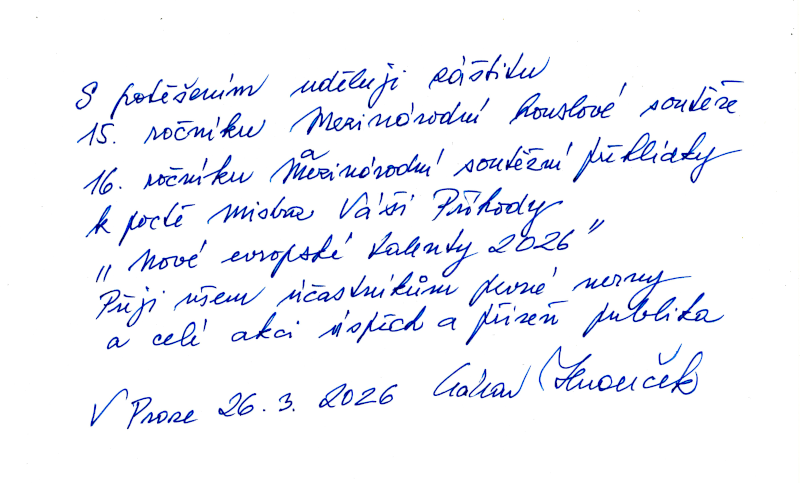 S potěšením uděluji záštitu
15. ročníku Mezinárodní houslové soutěže
a
16. ročníku Mezinárodní soutěžní přehlídky
k poctě mistra Váši Příhody
„Nové evropské talenty 2026"
Přeji všem účastníkům pevné nervy
a celé akci úspěch a přízeň publika
V Praze 26. 3. 2026 Václav Hudeček